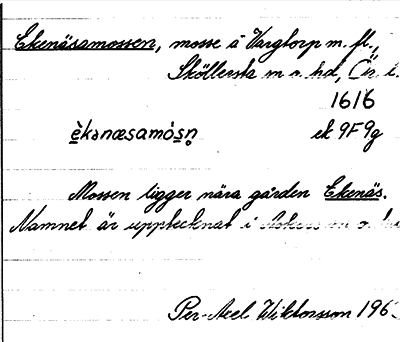 Ekenäsamossen, mosse å Vargtorp m. fl.,
Sköllersta sn o. hd, Ör. l.
1616
èkənæsamòsn̥ ek 9F9g
Mossen ligger nära gården Ekenäs.
Namnet är upptecknat i
Per-Axel Wiktorsson 196